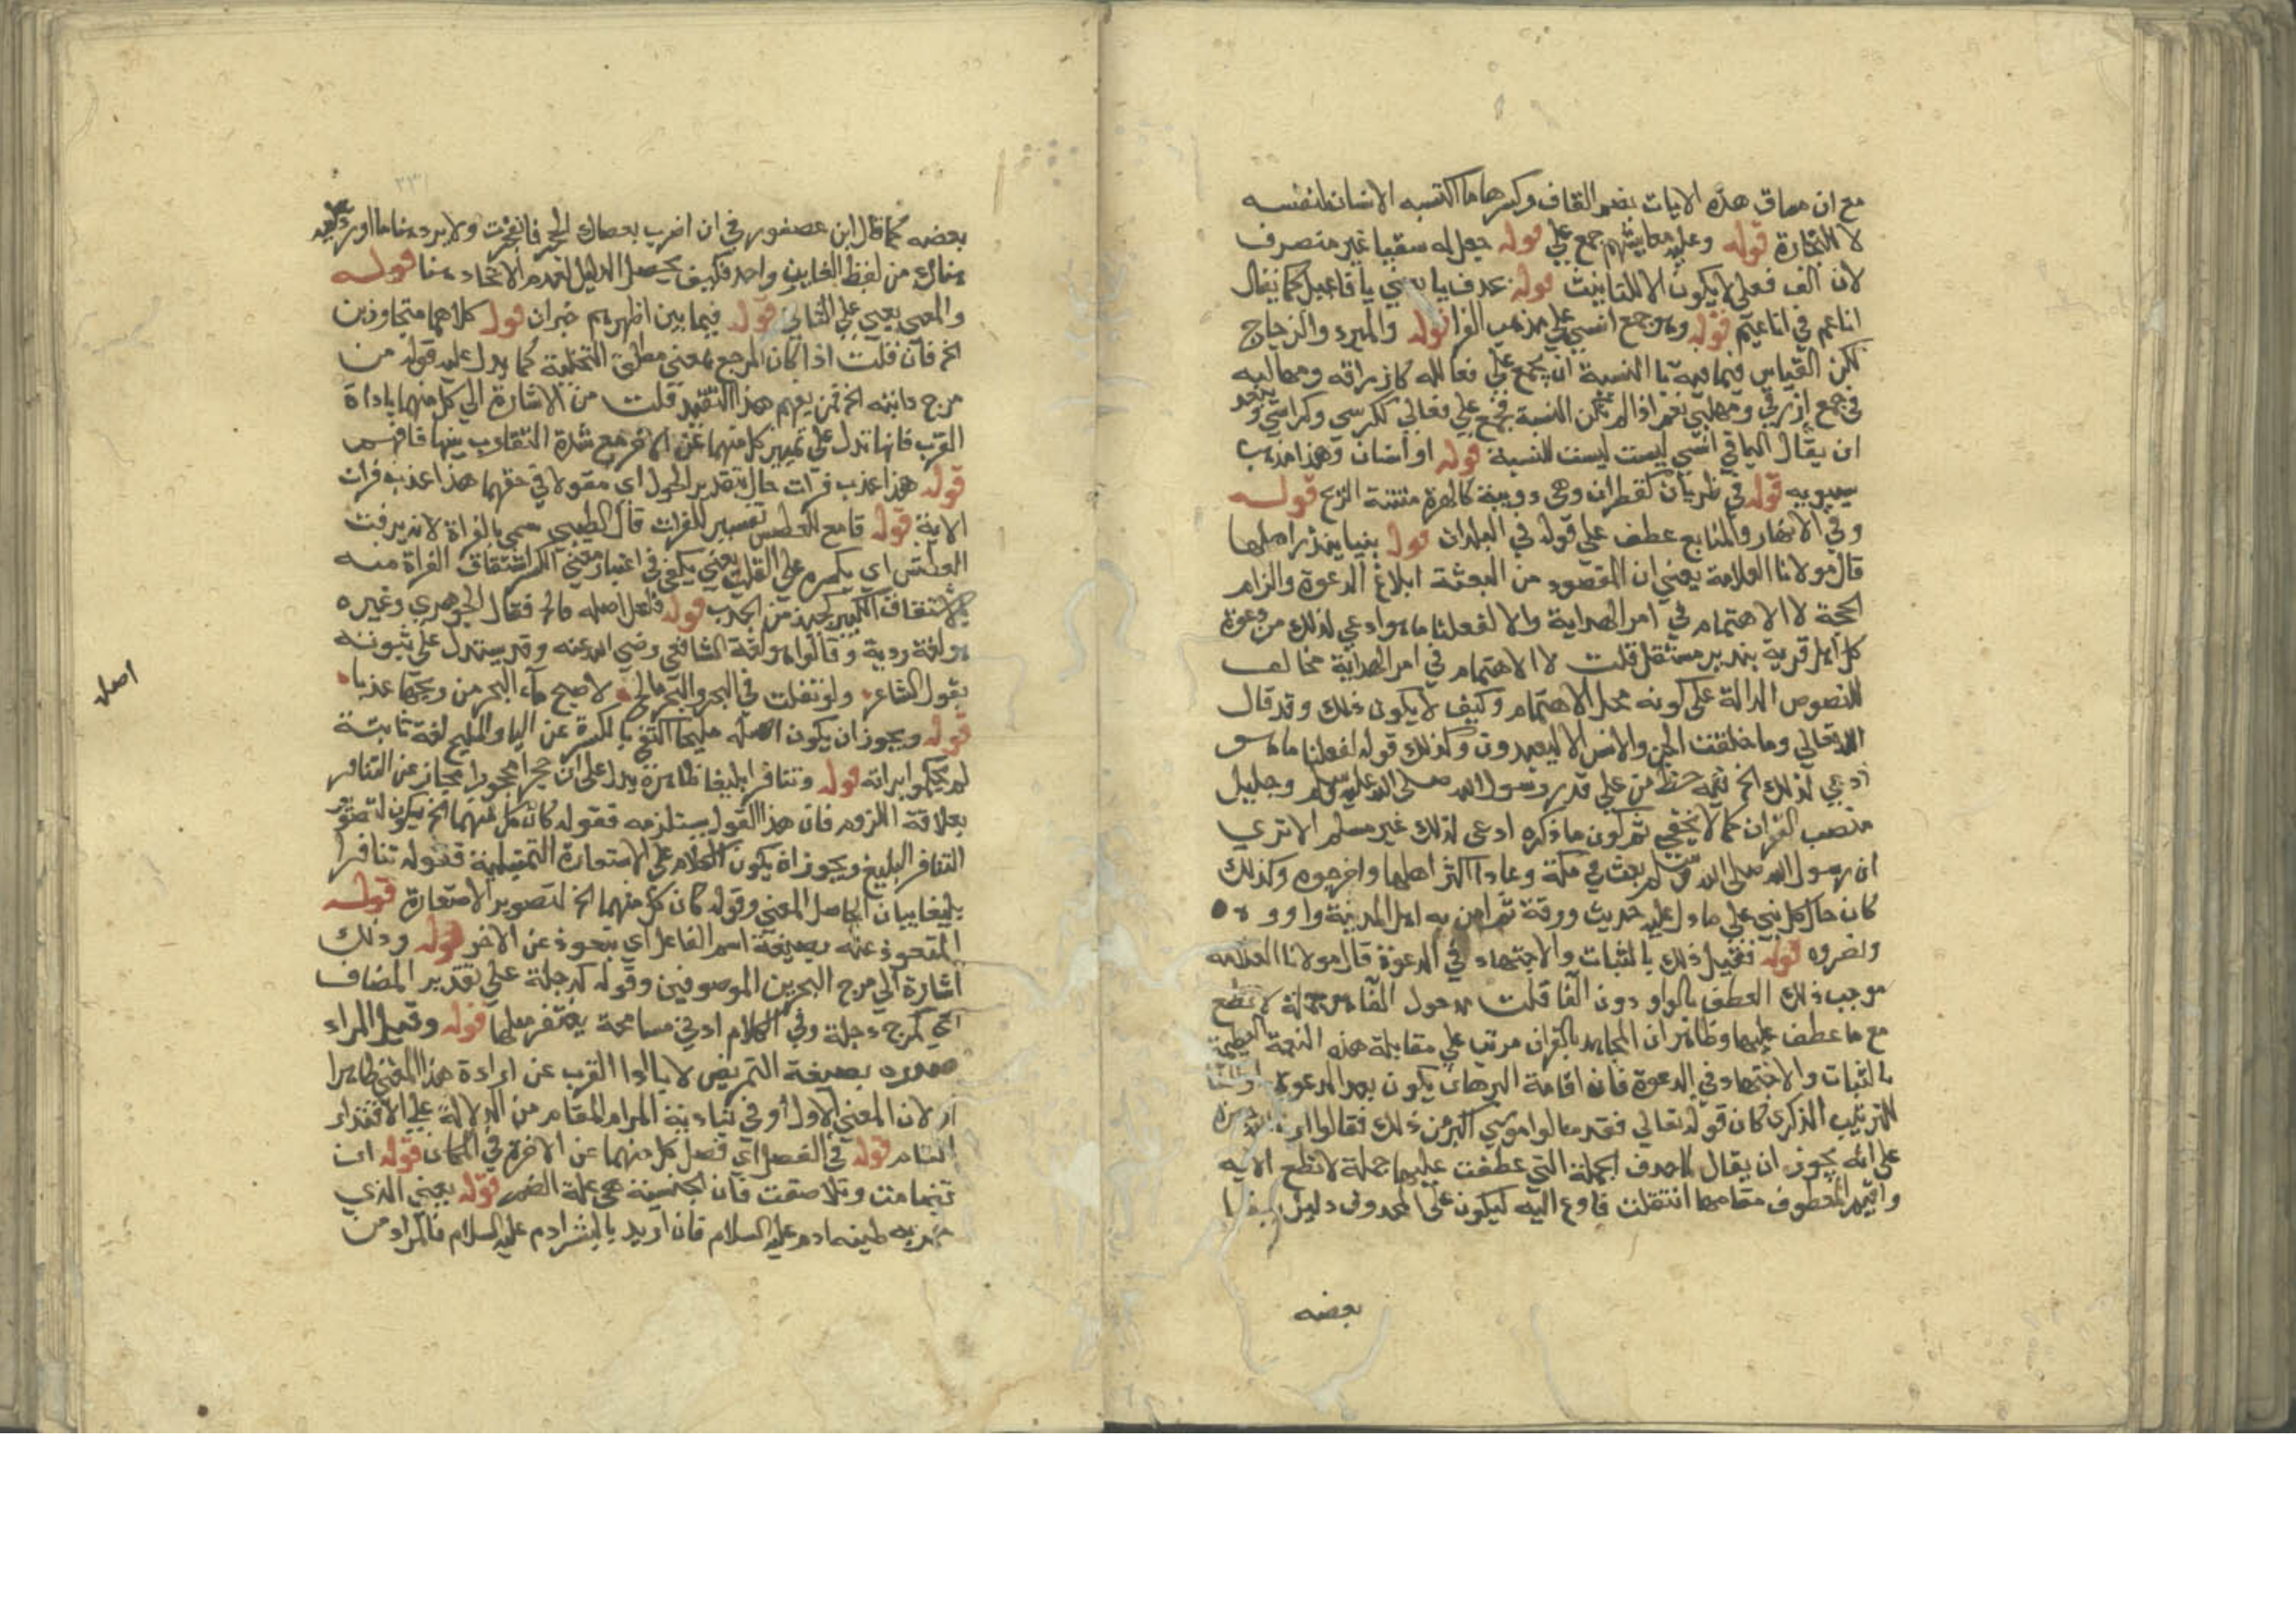 مع ان مساق هذه الايات بضم القاف وكسرها ما اكتسبه الانسان لنفسه
لا للتجارة قوله وعليه معايشهم جمع علي قوله جعل له سقيا غير منصرف
لان الف فعلى لا يكون الا للتانيث قوله بحذف يا افاعيل كما يقال
اناعم في اناعيم قوله وهو جمع انسي علي مذهب الفرا قوله والمبرد والزجاج
لكن القياس فيما فيه يا النسبة ان يجمع علي فعالله كازارقه ومهالبه
في جمع ازرقي ومهلبي نعم اذا لم تكن للنسبة يجمع علي فعالي ككرسي وكراسي
ان يقال اليا في انسي ليست للنسبة قوله او انسان وهذا مذهب
سيبويه قوله في ظربان كقطران وهي دويبة كالهرة منتنة الريح قوله
وفي الانهار والمنابع عطف علي قوله في البلدان قوله نبيا ينذر اهلها
قال مولانا العلامة يعني ان المقصود من البعثة ابلاغ الدعوة والزام
الحجة لا الاهتمام في امر الهداية والا لفعلنا ما هو ادعي لذلك من دعوة
كل اهل قرية بنذير مستقل قلت لا الاهتمام في امر الهداية مخالف
للنصوص الدالة علي كونه محل الاهتمام وكيف لا يكون ذلك وقد قال
الله تعالي وما خلقت الجن والانس الا ليعبدون وكذلك قوله لفعلنا ما هو
ادعي لذلك الخ فيه حط من علي قدر رسول الله صلى الله عليه وسلم وجليل
منصب القران كما لا يخفي ثم كون ما ذكره ادعى لذلك غير مسلم الا تري
ان رسول الله صلى الله وسلم بعث في مكة وعادا اكثر اهلها واخرجوه وكذلك
كان حال كل نبي علي ما دل عليه حديث ورقة ثم امن به اهل المدينة واووه
ونصروه قوله فقيل ذلك بالثبات والاجتهاد في الدعوة قال مولانا العلامه
موجب ذلك العطف بالواو دون الفا قلت مدخول الفا لا تطع
مع ما عطف عليها وظاهر ان المجاهد بالقران مرتب علي مقابلة هذه النعمة العظيمة
بالثبات والاجتهاد في الدعوة فان اقامة البرهان يكون بعد الدعوة
للترتيب الذكرى كان قوله تعالي فقد سالوا موسي اكبر من ذلك فقالوا ارنا الله جهرة
علي انه يجوز ان يقال لما حذف الجملة التي عطفت عليها جملة لا تطع الايه
واقيم المعطوف مقامها انتقلت فاوع اليه ليكون على المحذوف دليل
بعضه
بعضه كما قال ابن عصفور في ان اضرب بعصاك الحجر فانفجرت ولا يرد هنا ما اورد عليه
هناك من لفظ الفايين واحد فكيف يحصل الدليل لعدم الاتحاد هنا قوله
والمعني يعني علي الثاني قوله فيما بين اظهرهم خبران قوله كلاهما متجاوزين
الخ فان قلت اذا كان المرجع بمعني مطلق التخلية كما يدل عليه قوله من
مرج دابته الخ فمن يفهم هذا التقييد قلت من الاشارة الي كل منهما باداة
القرب فانها تدل علي تمييز كل منهما عن الاخر مع شدة التقارب بينها فافهم
قوله هذا عذب فرات حال بتقدير القول اي مقولا في حقهما هذا عذب فرات
الاية قوله قامع للعطش تفسير للفرات قال الطيبي سمي بالفراة لانه يرفت
العطش اي يكسره علي القلب يعني يكفي في اعتبار معني الكسر اشتقاق الفراة منه
كالاشتقاق الكبير لجبذ من الجذب قوله ولعل اصله مالح فقال الجوهري وغيره
هو لغة ردية وقالوا هو لغة الشافعي رضي الله عنه وقد يستدل علي ثبوته
بقول الشاعر ولو تفلت في البحر والبحر مالح لاصبح ماء البحر من ريقها عذبا
قوله ويجوز ان يكون اصله مليحا اكتفي بالكسرة عن اليا والمليح لغة ثابتة
لم يحكموا برداته قوله وتنافرا بليغا ظاهره يدل علي ان حجرا محجورا مجاز عن التنافر
بعلاقة اللزوم فان هذا القول يستلزمه فقوله كان كل منهما الخ يكون لتصوير
التنافر البليغ ويجوز ان يكون الكلام علي الاستعارة التمثيلية فقوله تنافرا
بليغا بيان الحاصل المعني وقوله كان كل منهما الخ لتصوير الاستعارة قوله
المتعوذ عنه بصيغة اسم الفاعل اي يتعوذ عن الاخر قوله وذلك
اشارة الي مرج البحرين الموصوفين وقوله كدجلة علي تقدير المضاف
اي كمرج دجلة وفي الكلام ادني مسامحة يغتفر مثلها قوله وقيل المراد
صدره بصيغة التمريض لاباء اداة القرب عن ارادة هذا المعني ظاهرا
او لان المعني الاول اوفي بتادية المرام المقام من الدلالة علي الاقتدار
التام قوله في الفصل اي فصل كل منهما عن الاخر في المكان قوله ان
تضامت وتلاصقت فان الجنسية هي علة الضم قوله يعني الذي
خمر به طينة ادم عليه السلام فان اريد بالبشر ادم عليه السلام فالمراد من
اصل
٢٣١